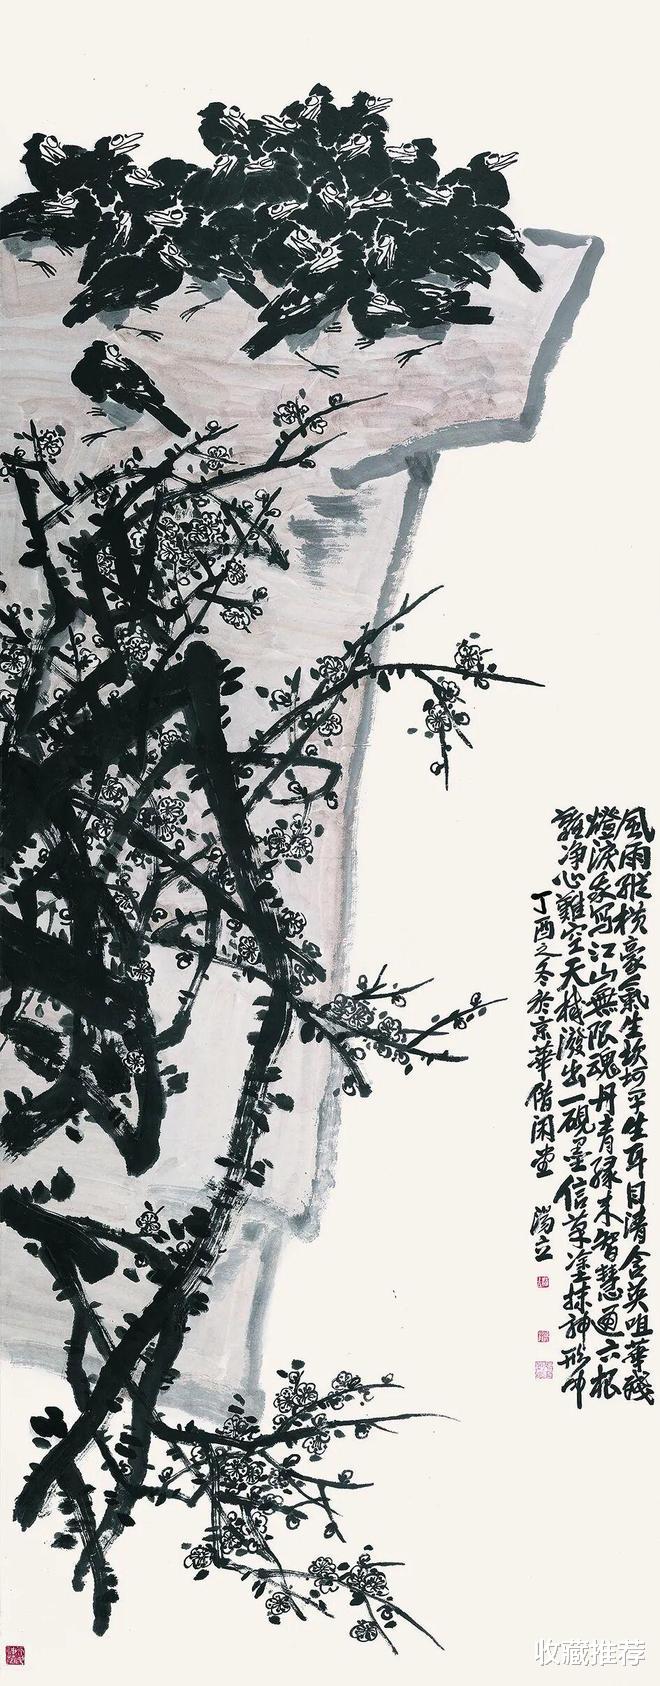 風雨縱橫豪氣生坎坷平生耳目清含英咀華殘
燈淚寫江山無限魂丹青緣未智慧通六根
難淨心難空天機潑出一硯墨信筆塗抹神形中
丁酉之冬於京華借閑堂 湯立
收藏推荐